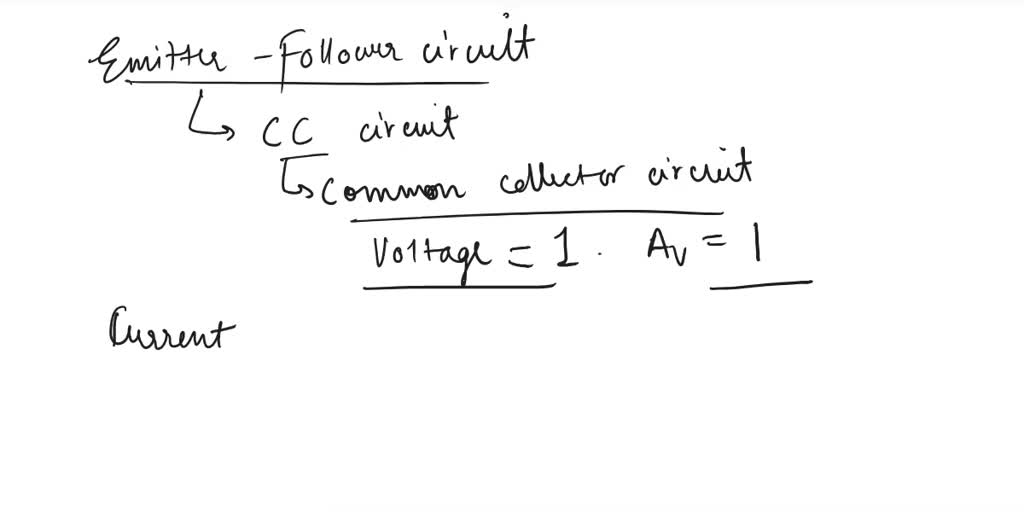 Emitter - Follower circuit
CC circuit
Common collector circuit
Voltage = 1. Av = 1
Current